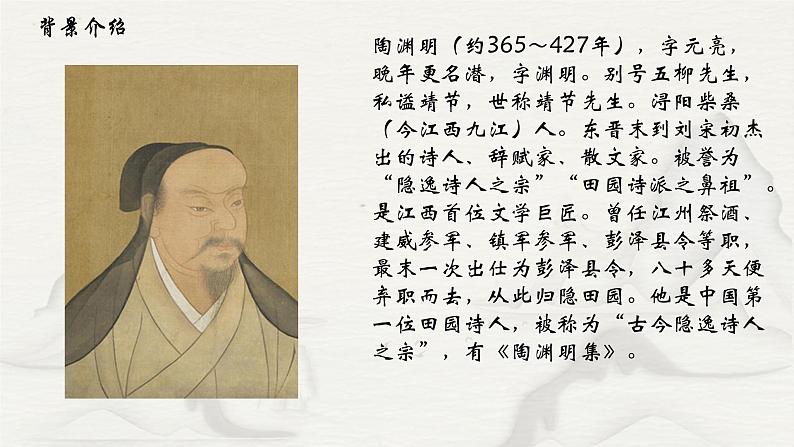 背景介绍
陶渊明（约365～427年），字元亮，
晚年更名潜，字渊明。别号五柳先生，
私谥靖节，世称靖节先生。浔阳柴桑
（今江西九江）人。东晋末到刘宋初杰
出的诗人、辞赋家、散文家。被誉为
“隐逸诗人之宗”“田园诗派之鼻祖”。
是江西首位文学巨匠。曾任江州祭酒、
建威参军、镇军参军、彭泽县令等职，
最末一次出仕为彭泽县令，八十多天便
弃职而去，从此归隐田园。他是中国第
一位田园诗人，被称为“古今隐逸诗人
之宗”，有《陶渊明集》。